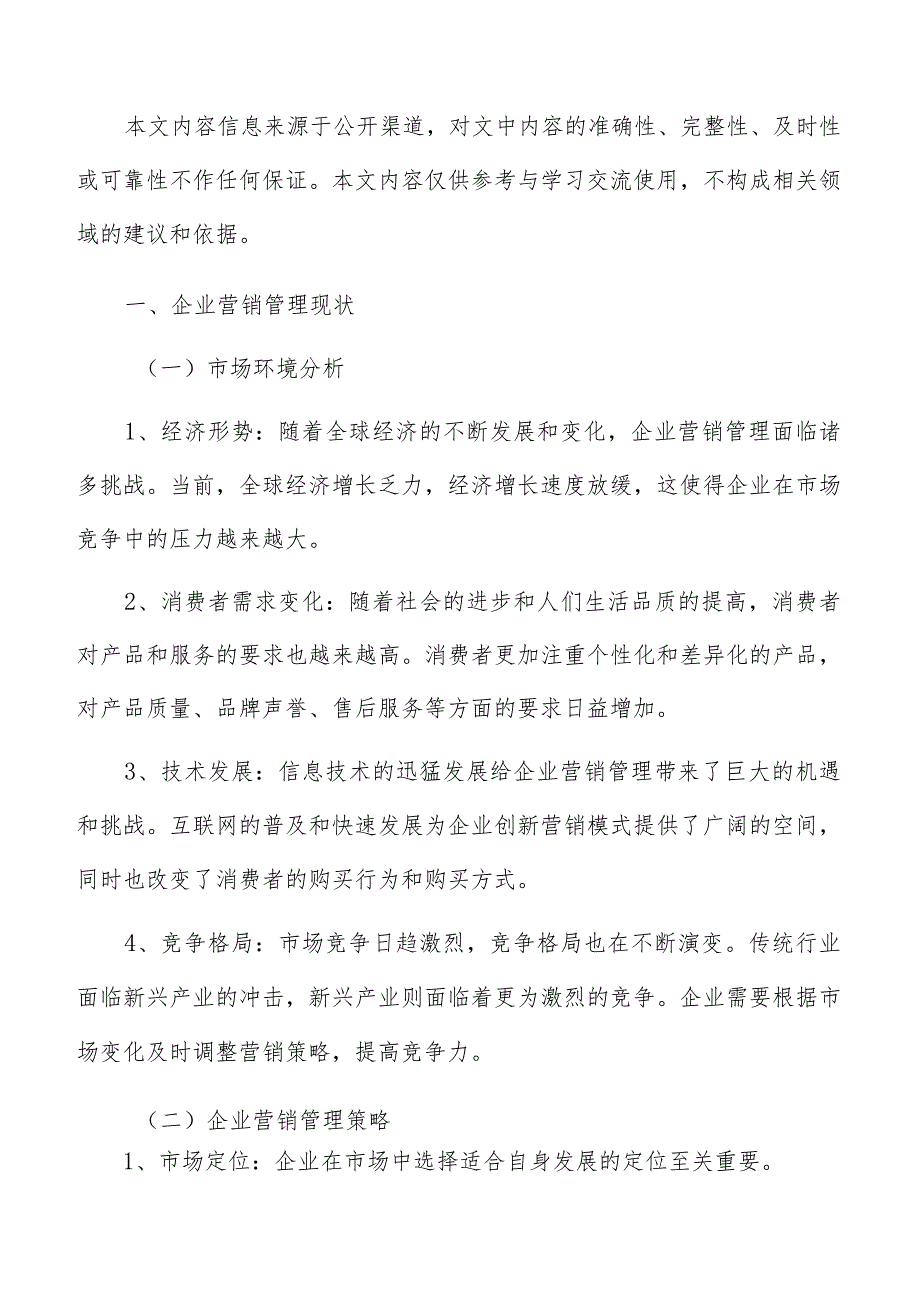 本文内容信息来源于公开渠道，对文中内容的准确性、完整性、及时性
或可靠性不作任何保证。本文内容仅供参考与学习交流使用，不构成相关领
域的建议和依据。
一、企业营销管理现状
（一）市场环境分析
1、经济形势：随着全球经济的不断发展和变化，企业营销管理面临诸
多挑战。当前，全球经济增长乏力，经济增长速度放缓，这使得企业在市场
竞争中的压力越来越大。
2、消费者需求变化：随着社会的进步和人们生活品质的提高，消费者
对产品和服务的要求也越来越高。消费者更加注重个性化和差异化的产品，
对产品质量、品牌声誉、售后服务等方面的要求日益增加。
3、技术发展：信息技术的迅猛发展给企业营销管理带来了巨大的机遇
和挑战。互联网的普及和快速发展为企业创新营销模式提供了广阔的空间，
同时也改变了消费者的购买行为和购买方式。
4、竞争格局：市场竞争日趋激烈，竞争格局也在不断演变。传统行业
面临新兴产业的冲击，新兴产业则面临着更为激烈的竞争。企业需要根据市
场变化及时调整营销策略，提高竞争力。
（二）企业营销管理策略
1、市场定位：企业在市场中选择适合自身发展的定位至关重要。